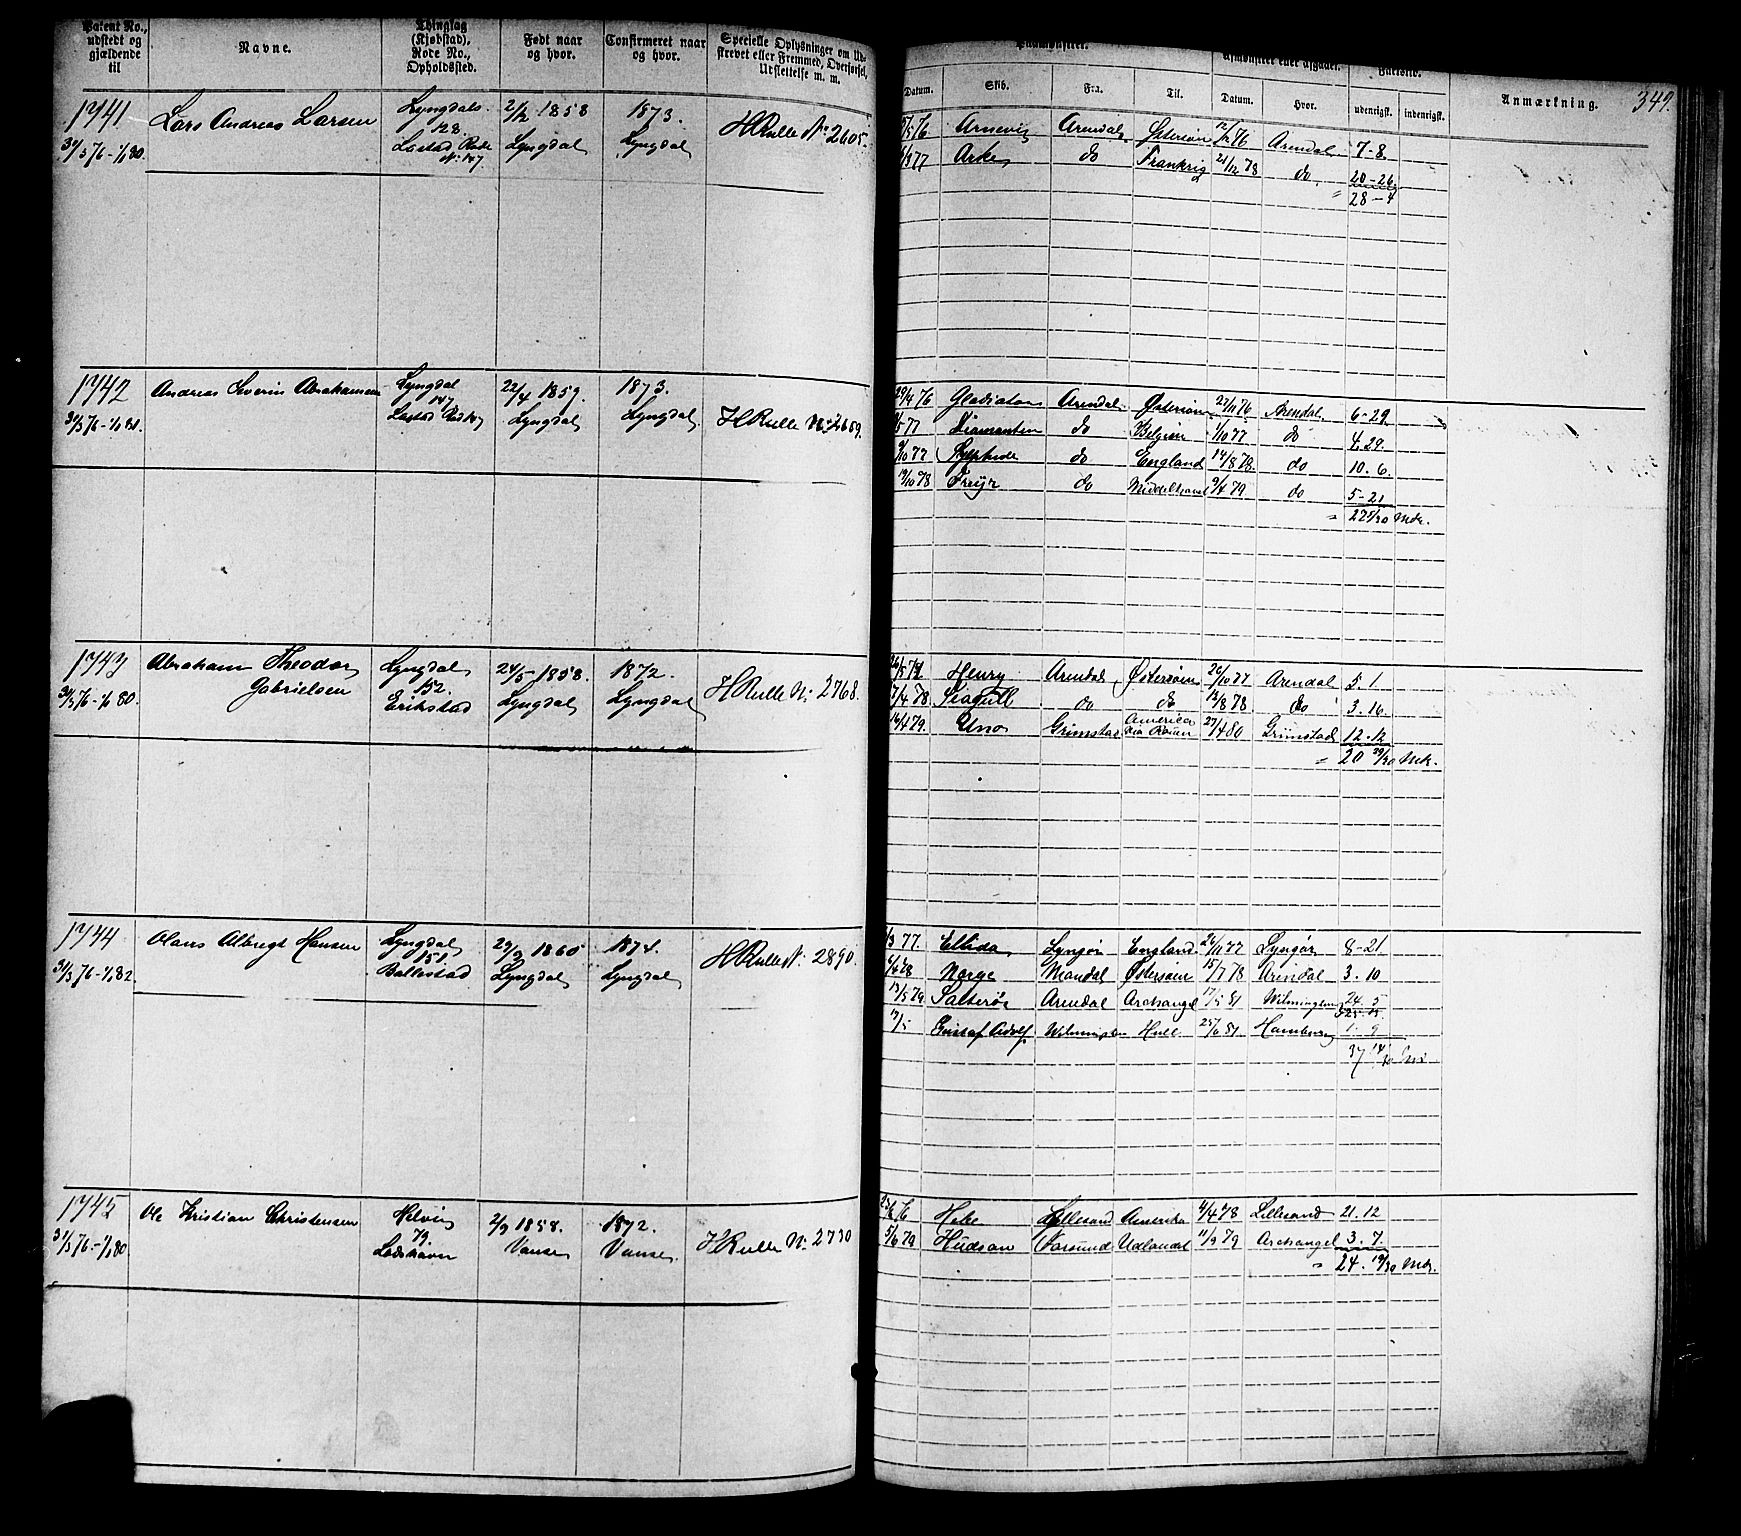 Patent No., udstedt og gjældende til
Navne.
Thinglag (Kjøbstad), Rode No., Opholdssted.
Født naar og hvor.
Confirmeret naar og hvor.
Specielle Oplysninger om Udskrevet eller Fremmed, Overførsel, Udslettelse m. m.
Datum. Skib. Fra. Til. Datum. Hvor. udenrigsk. indenrigsk. Anmærkning. 349.
1741 Lars Andreas Larsen Lyngdals 2/2 1858 1873. HRulle No 2605.
128.
31/3 76-1/1 80. Lastad Rode Lyngdal Lyngdal
No 147.
Arnevig Arendal Østersøn 12/12 76 Arendal 7-8.
Arke do Frankrig 21/12 78 do 20-26
" 28-4
1742 Andreas Severin Abrahamsen Lyngdal 22/4 1859. 1873.
147
31/3 76-1/1 81. Lastad Lyngdal Lyngdal HRulle No 2659.
Gladiator Arendal Østersøn 23/11 76 Arendal 6-29
Diamanten do Belgien 1/10 77 do 4.29.
9/10 77 Sylphide do England 14/8 78 do 10.6.
19/10 78 Freijr do Middelhavet 9/4 79 do 5-21
" 27 25/30 Mdr.
1743 Abraham Theodor Gabrielsen Lyngdal 24/5-1858. 1872. HRulle No 2768.
152.
31/3 76-1/1 80. Erikstad Lyngdal Lyngdal
Henry Arendal Østersøen 20/10 77 Arendal 5.1
7/4 78 Seagull do do 13/8 78 do 3.16
16/4 79. Uno Grimstad America 27/4 80 Grimstad 12.12
" 20 29/30 Mdr.
1744 Olaus Albregt Hansen Lyngdal 29/3 1860 1874. HRulle No 2890.
151.
31/3 76-1/1 82. Ballastad Lyngdal Lyngdal
77. Ellida Lyngør England 26/11 77 Lyngør 8-21
Norge Mandal Østersøen 15/7 78 Arendal 3.10
13/5 79 Salterøe Arendal Archangel 17/5 81 Wilmington 24.5
17/5 Gustaf Adolf Wilmington Hull 25/6 81 Hamburg 1-9
37 14/30 Md
1745 Ole Kristian Christensen Helvig 2/9 1858. 1872. HRulle No 2730
79.
31/3 76-1/1 80 Ladshavn Vanse Vanse
Hebe Lillesand Amerika 4/4 78 Lillesand 21.12
5/6 79 Hudson Farsund Udlandet 11/9 79 Archangel 3.7.
" 24. 19/30 Mdr.